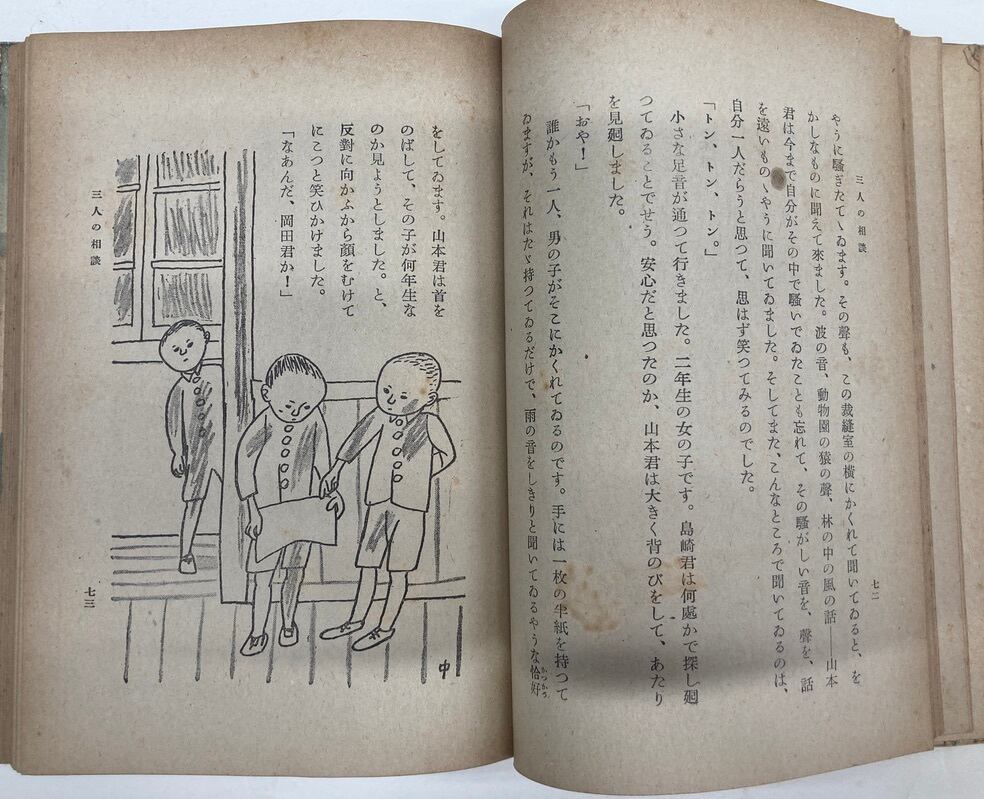 三人の相談
やうに騒ぎたてゝゐます。その聲も、この裁縫室の横にかくれて聞いてゐると、を
かしなものに聞えて來ました。波の音、動物園の猿の聲、林の中の風の話――山本
君は今まで自分がその中で騒いでゐたことも忘れて、その騒がしい音を、聲を、話
を遠いものゝやうに聞いてゐました。そしてまた、こんなところで聞いてゐるのは、
自分一人だらうと思つて、思はず笑つてみるのでした。
「トン、トン、トン。」
小さな足音が通つて行きました。二年生の女の子です。島崎君は何處かで探し廻
つてゐることでせう。安心だと思つたのか、山本君は大きく背のびをして、あたり
を見廻しました。
「おや！」
誰かもう一人、男の子がそこにかくれてゐるのです。手には一枚の半紙を持つて
ゐますが、それはたゞ持つてゐるだけで、雨の音をしきりと聞いてゐるやうな恰好
かつかう
七二
をしてゐます。山本君は首を
のばして、その子が何年生な
のか見ようとしました。と、
反對に向かふから顔をむけて
にこつと笑ひかけました。
「なあんだ、岡田君か！」
中
三人の相談
七三